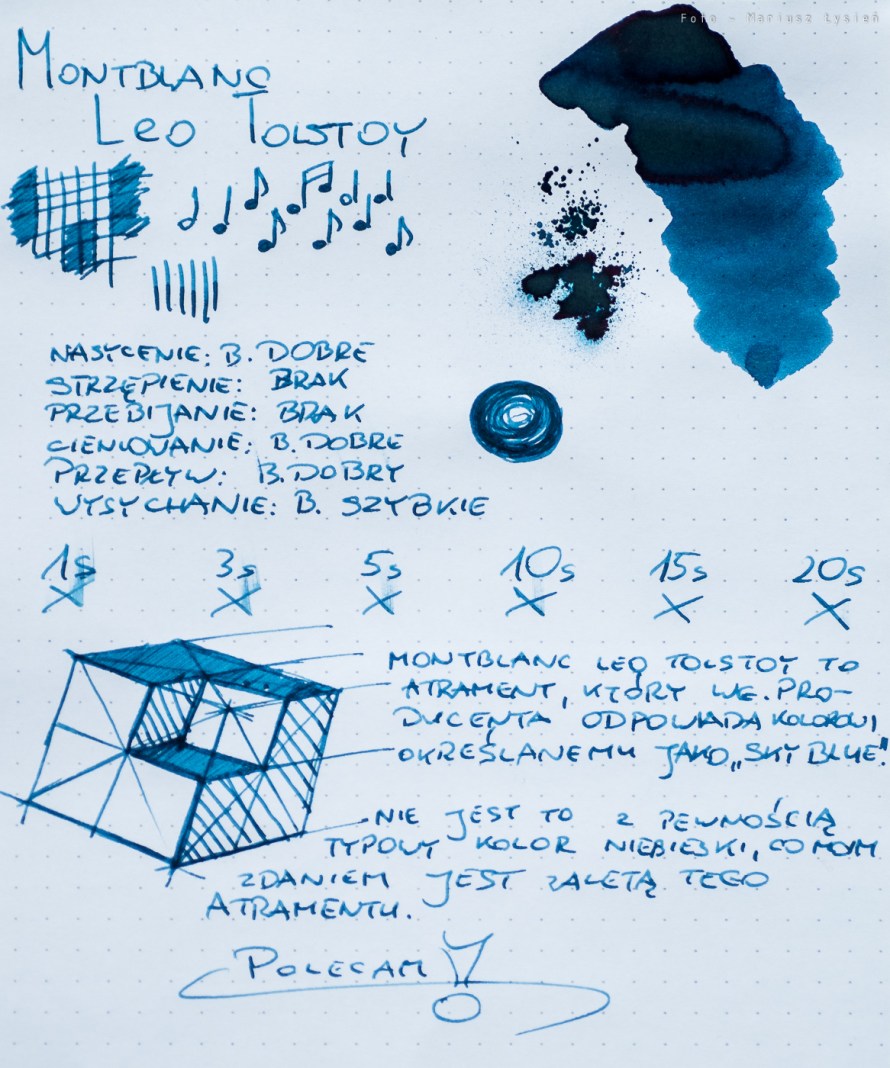 Foto - Mariusz Łysień
MONTBLANC
LEO TOLSTOY
NASYCENIE: B. DOBRE
STRZĘPIENIE: BRAK
PRZEBIJANIE: BRAK
CIENIOWANIE: B. DOBRE
PRZEPŁYW: B. DOBRY
WYSYCHANIE: B. SZYBKIE
1s 3s 5s 10s 15s 20s
MONTBLANC LEO TOLSTOY TO
ATRAMENT, KTÓRY WG. PRO-
DUCENTA ODPOWIADA KOLOROWI
OKREŚLANEMU JAKO „SKY BLUE".
NIE JEST TO Z PEWNOŚCIĄ
TYPOWY KOLOR NIEBIESKI, CO MOIM
ZDANIEM JEST ZALETĄ TEGO
ATRAMENTU.
POLECAM!